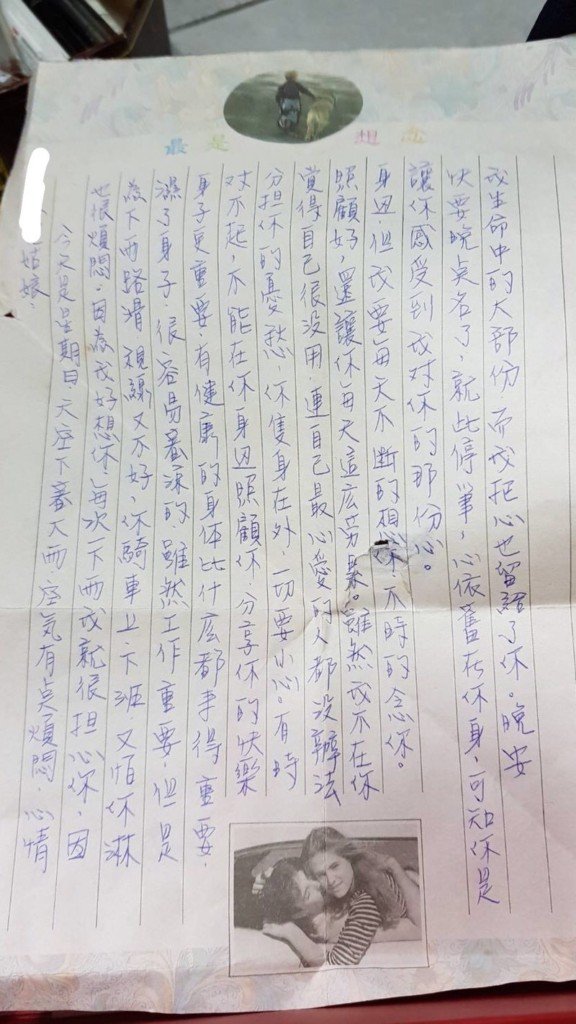 最是想念
姑娘:
今天是星期日,天空下著大雨,空氣有点煩悶,心情
也很煩悶,因為我好想你,每次一下雨我就很担心你,因
為下雨路滑視線又不好,你騎車上下班,又怕你淋
濕了身子,很容易著涼的,雖然工作重要,但是
身子更重要,有健康的身体比什庅都事得重要,
对不起,不能在你身边照顧你,分享你的快樂
分担你的憂愁,你隻身在外,一切要小心。有時
覚得自己很没用,連自己最心愛的人都没辦法
照顧好,還讓你每天這庅勞累。雖然我不在你
身边,但我要每天不断的想你,不時的念你。
讓你感受到我对你的那份心。
快要晚点名了,就此停筆,心依舊在你身,可知你是
我生命中的大部份,而我把心也留給了你。晚安